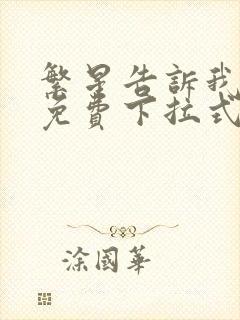 繁星告訴我
免費下拉式
涂國華